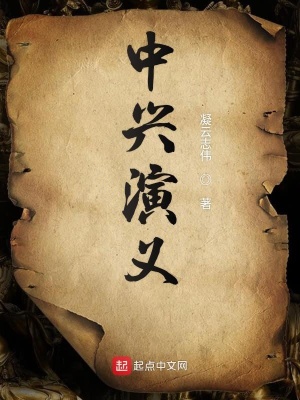 中兴演义
凝云志伟
著
起 起点中文网